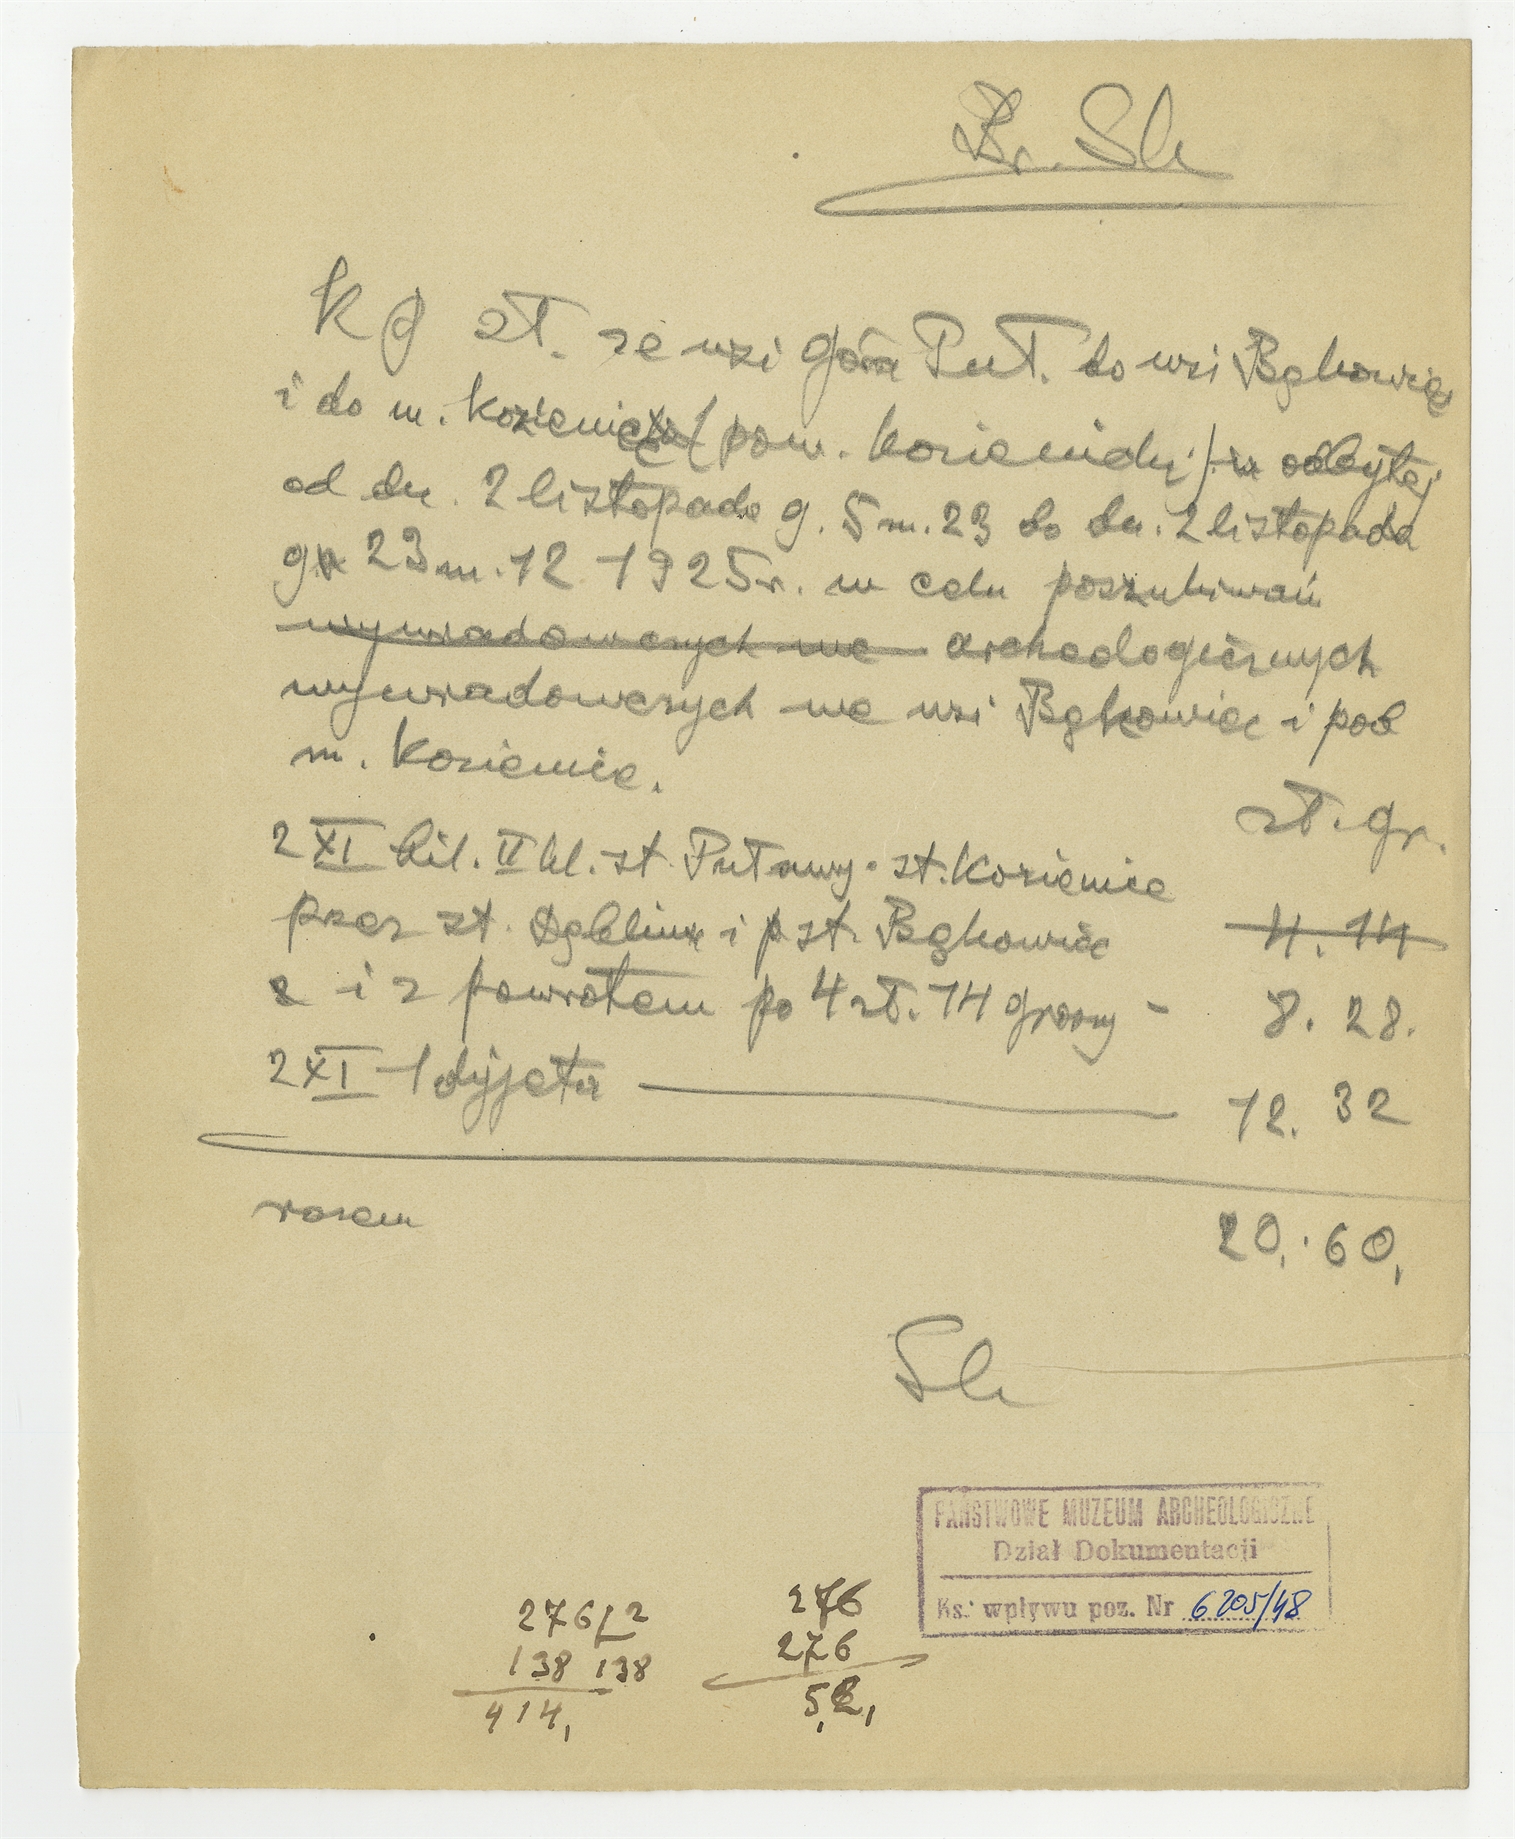 Br. Sk
K P zł. ze wsi Góra Puł. do wsi Bąkowiec
i do m. Kozienice (pow. kozienicki) odbytej
od dn. 2 listopada g. 5 m. 23 do dn. 2 listopada
g. 23 m. 12 1925 r. w celu poszukiwań
wywiadowczych we archeologicznych
wywiadowczych we wsi Bąkowiec i pod
m. Kozienice.
zł. gr.
2 XI bil. II kl. st. Puławy - st. Kozienice
przez st. Dęblin i p st. Bąkowiec 4. 14
i z powrotem po 4 zł. 14 groszy - 8. 28.
2 XI - 1 dyjeta 12. 32
razem 20. 60,
Sk
PAŃSTWOWE MUZEUM ARCHEOLOGICZNE
Dział Dokumentacji
Ks. wpływu poz. Nr 6205/48
276/2 276
138 138 276
414, 5,2,